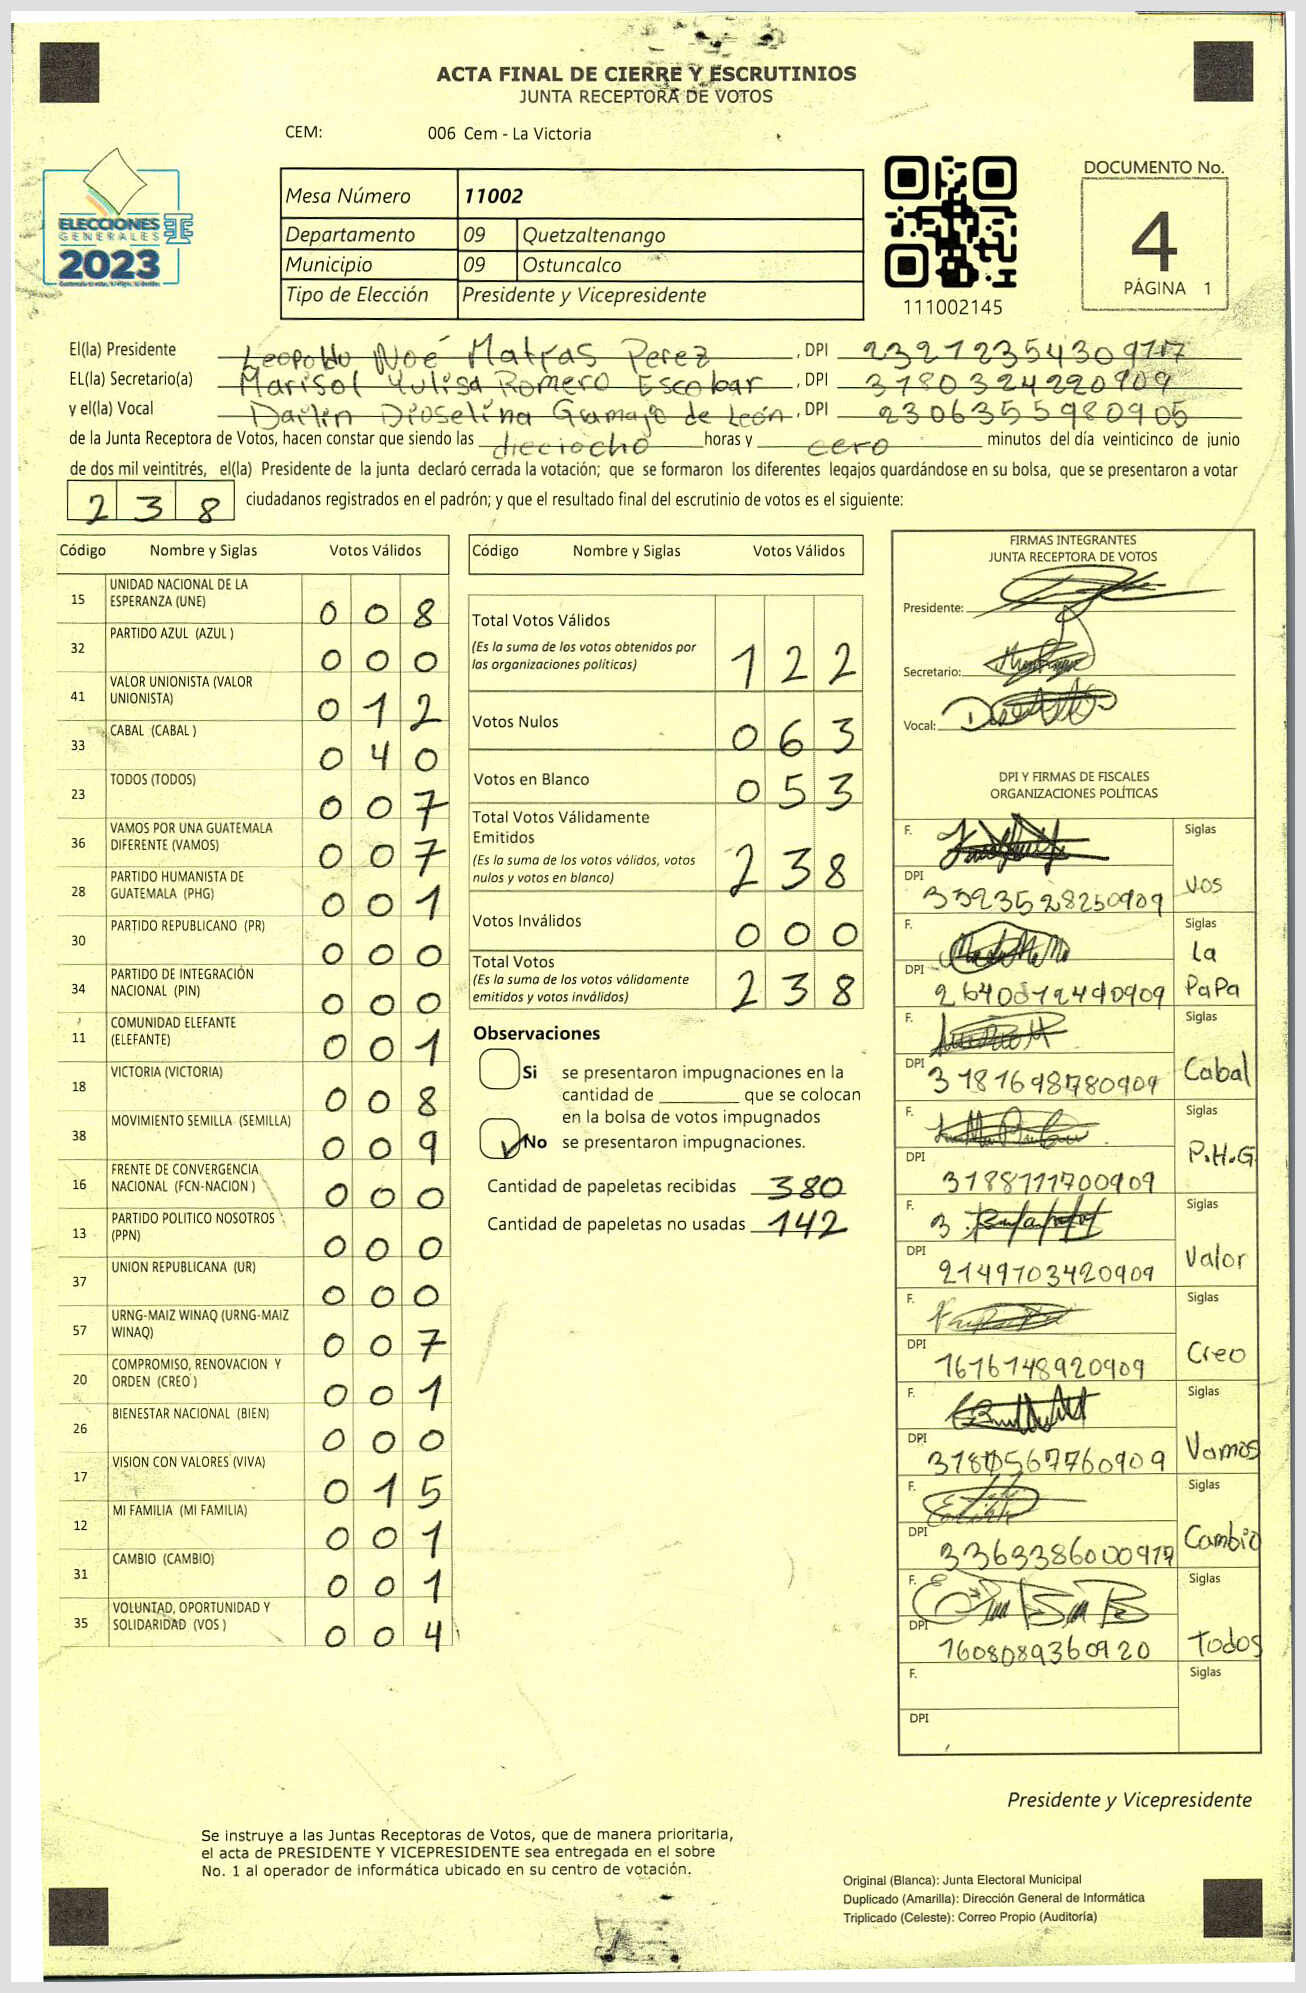 ACTA FINAL DE CIERRE Y ESCRUTINIOS
JUNTA RECEPTORA DE VOTOS
CEM: 006 Cem - La Victoria
ELECCIONES
GENERALES
2023
Mesa Número 11002
Departamento 09 Quetzaltenango
Municipio 09 Ostuncalco
Tipo de Elección Presidente y Vicepresidente
111002145
DOCUMENTO No.
4
PÁGINA 1
El(la) Presidente Leopoldo Noé Matías Perez, DPI
EL(la) Secretario(a) Marisol Yulisa Romero Escobar, DPI 3780324220909
y el(la) Vocal Dailin Dioselina Gramajo de León, DPI 2306355980905
de la Junta Receptora de Votos, hacen constar que siendo las dieciocho horas y cero minutos del día veinticinco de junio
de dos mil veintitrés, el(la) Presidente de la junta declaró cerrada la votación; que se formaron los diferentes legajos guardándose en su bolsa, que se presentaron a votar
238 ciudadanos registrados en el padrón; y que el resultado final del escrutinio de votos es el siguiente:
Código Nombre y Siglas Votos Válidos
15 UNIDAD NACIONAL DE LA ESPERANZA (UNE) 008
32 PARTIDO AZUL (AZUL ) 000
41 VALOR UNIONISTA (VALOR UNIONISTA) 012
33 CABAL (CABAL ) 040
23 TODOS (TODOS) 007
36 VAMOS POR UNA GUATEMALA DIFERENTE (VAMOS) 007
28 PARTIDO HUMANISTA DE GUATEMALA (PHG) 001
30 PARTIDO REPUBLICANO (PR) 000
34 PARTIDO DE INTEGRACIÓN NACIONAL (PIN) 000
11 COMUNIDAD ELEFANTE (ELEFANTE) 001
18 VICTORIA (VICTORIA) 008
38 MOVIMIENTO SEMILLA (SEMILLA) 009
16 FRENTE DE CONVERGENCIA NACIONAL (FCN-NACION ) 000
13 PARTIDO POLITICO NOSOTROS (PPN) 000
37 UNION REPUBLICANA (UR) 000
57 URNG-MAIZ WINAQ (URNG-MAIZ WINAQ) 007
20 COMPROMISO, RENOVACION Y ORDEN (CREO ) 001
26 BIENESTAR NACIONAL (BIEN) 000
17 VISION CON VALORES (VIVA) 015
12 MI FAMILIA (MI FAMILIA) 001
31 CAMBIO (CAMBIO) 001
35 VOLUNTAD, OPORTUNIDAD Y SOLIDARIDAD (VOS ) 004
Código Nombre y Siglas Votos Válidos
Total Votos Válidos 122
(Es la suma de los votos obtenidos por
las organizaciones políticas)
Votos Nulos 063
Votos en Blanco 053
Total Votos Válidamente
Emitidos 238
(Es la suma de los votos válidos, votos
nulos y votos en blanco)
Votos Inválidos 000
Total Votos 238
(Es la suma de los votos válidamente
emitidos y votos inválidos)
Observaciones
Si se presentaron impugnaciones en la
cantidad de ________ que se colocan
en la bolsa de votos impugnados
No se presentaron impugnaciones.
Cantidad de papeletas recibidas 380
Cantidad de papeletas no usadas 142
FIRMAS INTEGRANTES
JUNTA RECEPTORA DE VOTOS
Presidente:
Secretario:
Vocal:
DPI Y FIRMAS DE FISCALES
ORGANIZACIONES POLÍTICAS
F. Siglas
DPI 3523528250909 VOS
F. Siglas
DPI La PaPa
F. Siglas
DPI 3181698780909 Cabal
F. Siglas
DPI 3188111700909 P.H.G
F. Siglas
DPI 2149703420909 Valor
F. Siglas
DPI 1616748920909 Creo
F. Siglas
DPI Vamos
F. Siglas
DPI Cambio
F. Siglas
DPI 1608089360920 Todos
F. Siglas
DPI
Presidente y Vicepresidente
Se instruye a las Juntas Receptoras de Votos, que de manera prioritaria,
el acta de PRESIDENTE Y VICEPRESIDENTE sea entregada en el sobre
No. 1 al operador de informática ubicado en su centro de votación.
Original (Blanca): Junta Electoral Municipal
Duplicado (Amarilla): Dirección General de Informática
Triplicado (Celeste): Correo Propio (Auditoría)